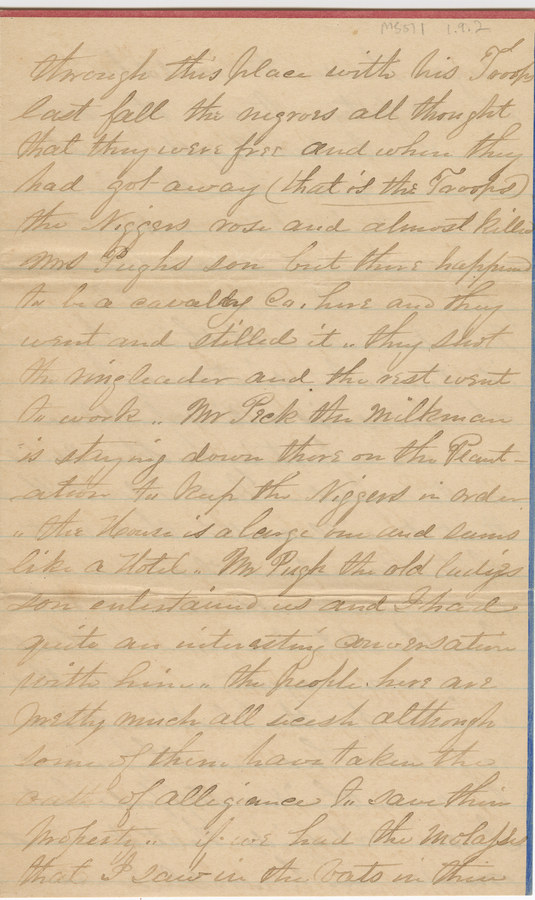 MSS 11 1.9.2
through this place with his Troops
last fall the negroes all thought
that they were free and when they
had got away (that is the Troops)
the Niggers rose and almost killed
Mrs Pughs son but there happened
to be a cavalry Co. here and they
went and stilled it .. they shot
the ringleader and the rest went
to work .. Mr Peck the Milkman
is staying down there on the Plant-
ation to keep the Niggers in order
.. the House is a large one and seems
like a Hotel .. Mr Pugh the old ladys
son entertained us and I had
quite an interesting conversation
with him .. the people here are
pretty much all secesh although
some of them have taken the
oath of allegiance to save their
property .. if we had the Molasses
that I saw in the vats in their